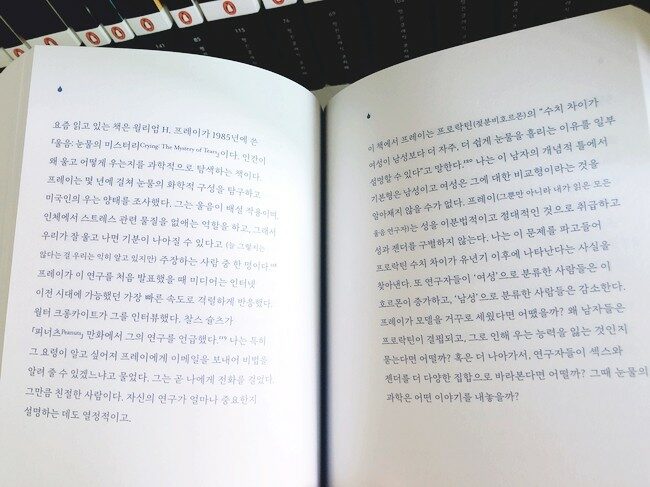 요즘 읽고 있는 책은 윌리엄 H. 프레이가 1985년에 쓴
『울음: 눈물의 미스터리Crying: The Mystery of Tears』이다. 인간이
왜 울고 어떻게 우는지를 과학적으로 탐색하는 책이다.
프레이는 몇 년에 걸쳐 눈물의 화학적 구성을 탐구하고
미국인의 우는 양태를 조사했다. 그는 울음이 배설 작용이며
인체에서 스트레스 관련 물질을 없애는 역할을 하고, 그래서
우리가 잘 울고 나면 기분이 나아질 수 있다고 (늘 그렇지는
않다는 걸 우리는 익히 알고 있지만) 주장하는 사람 중 한 명이다.
프레이가 이 연구를 처음 발표했을 때 미디어는 인터넷
이전 시대에 가능했던 가장 빠른 속도로 격렬하게 반응했다.
월터 크롱카이트가 그를 인터뷰했다. 찰스 슐츠가
『피너츠Peanuts』 만화에서 그의 연구를 언급했다. 나는 특히
그 요령이 알고 싶어져 프레이에게 이메일을 보내어 비법을
알려 줄 수 있겠느냐고 물었다. 그는 곧 나에게 전화를 걸었다.
그만큼 친절한 사람이다. 자신의 연구가 얼마나 중요한지
설명하는 데도 열정적이고.
이 책에서 프레이는 프로락틴(젖분비호르몬)의 "수치 차이가
여성이 남성보다 더 자주, 더 쉽게 눈물을 흘리는 이유를 일부
설명할 수 있다"고 말한다. 나는 이 남자의 개념적 틀에서
기본형은 남성이고 여성은 그에 대한 비교형이라는 것을
알아채지 않을 수가 없다. 프레이(그뿐만 아니라 내가 읽은 모든
울음 연구자)는 성을 이분법적이고 절대적인 것으로 취급하고
성과 젠더를 구별하지 않는다. 나는 이 문제를 파고들어
프로락틴 수치 차이가 유년기 이후에 나타난다는 사실을
찾아낸다. 또 연구자들이 '여성'으로 분류한 사람들은 이
호르몬이 증가하고, '남성'으로 분류한 사람들은 감소한다.
프레이가 모델을 거꾸로 세웠다면 어땠을까? 왜 남자들은
프로락틴이 결핍되고, 그로 인해 우는 능력을 잃는 것인지
묻는다면 어떨까? 혹은 더 나아가서, 연구자들이 섹스와
젠더를 더 다양한 집합으로 바라본다면 어떨까? 그때 눈물의
과학은 어떤 이야기를 내놓을까?